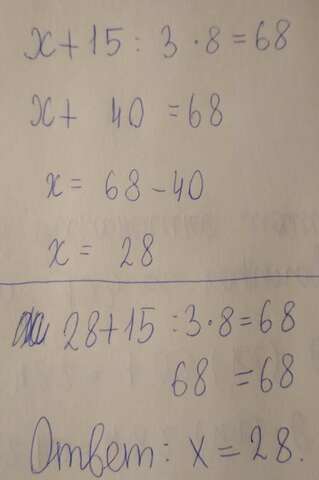 x+15:3·8=68
x+ 40 =68
x= 68-40
x= 28
28+15:3·8=68
68 =68
Ответ: x=28.